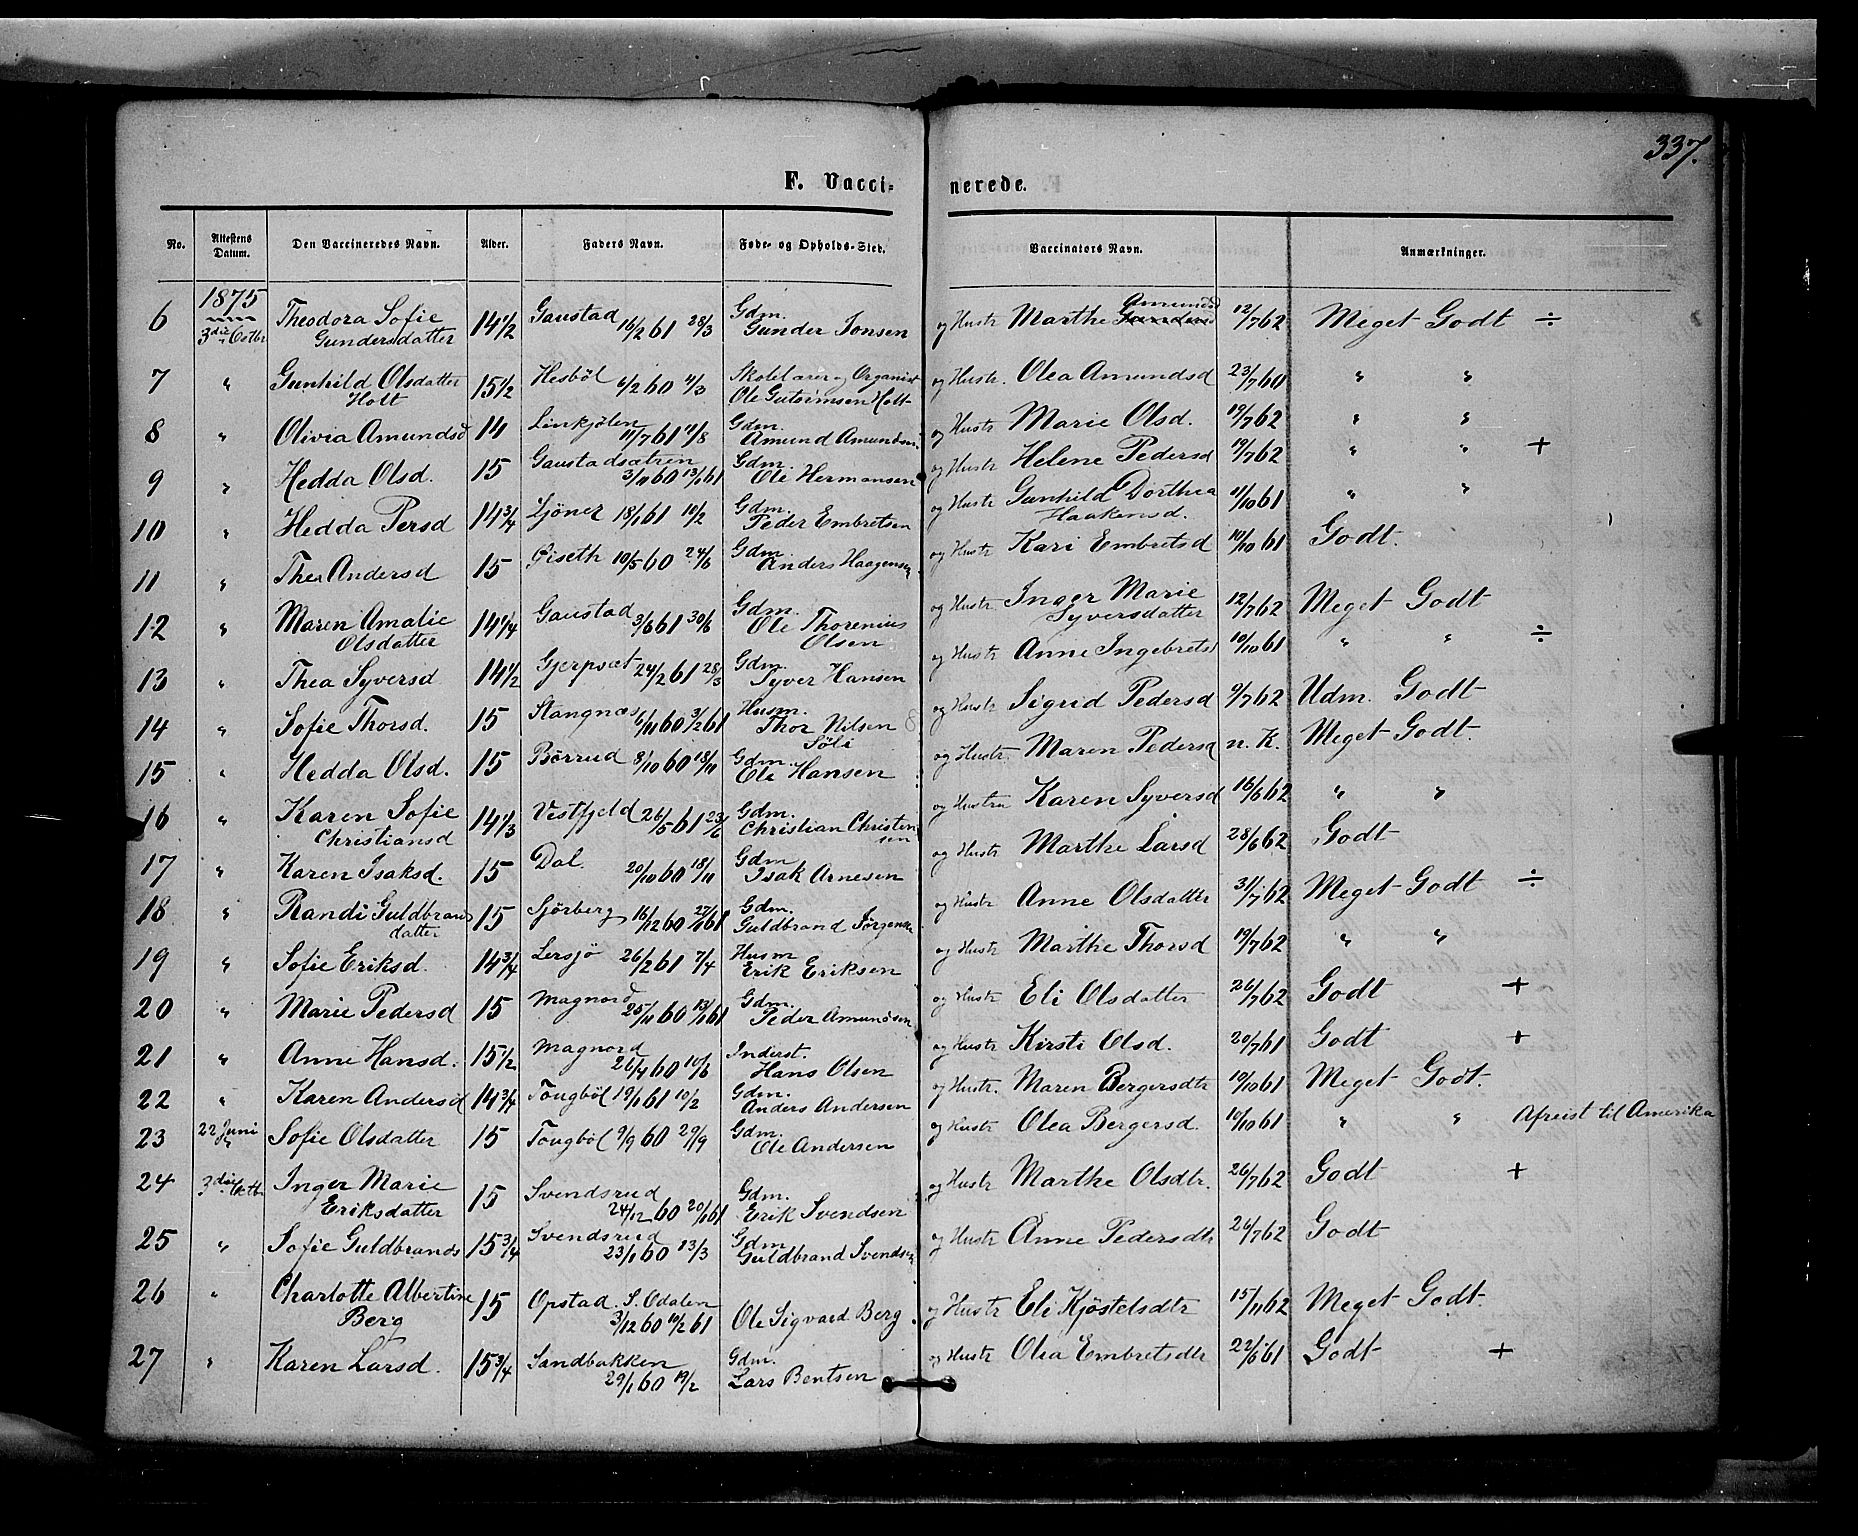 337.
F. Vacci- nerede.
No. Attestens Datum. Den Vaccineredes Navn. Alder. Faders Navn. Føde- og Opholds-Sted. Vaccinators Navn. Anmærkninger.
1875
6 3die Octbr Theodora Sofie Gundersdatter 14 1/2 Gaustad 16/2 61 28/3 Gdm. Gunder Jonsen og Hustr Marthe Amundsd 12/7 62 Meget Godt ÷
7 " Gunhild Olsdatter Holt 15 1/2 Hesböl 6/2 60 11/3 Skolelærer og Organist Ole Gutormsen Holt og Hustr. Olea Amundsd 23/7 60 " "
8 " Olivia Amundsd 14 Linkjölen 11/7 61 11/8 Gdm. Amund Amundsen og Hustr Marie Olsd. 19/7 62 " "
9 " Hedda Olsd. 15 Gaustadsætren 3/11 60 13/1 61 Gdm. Ole Hermansen og Hustr Helene Pedersd 19/7 62 " " +
10 " Hedda Persd 14 3/4 Ljöner 18/1 61 10/2 Gdm. Peder Embretsen og Hustr Gunhild Dorthea Haakensd. 11/10 61 " "
11 " Thea Andersd 15 Öiseth 10/5 60 24/6 Gdm. Anders Haagensen og Hustr Kari Embretsd 10/10 61 Godt.
12 " Maren Amalie Olsdatter 14 1/4 Gaustad 3/6 61 30/6 Gdm. Ole Thorenius Olsen og Hustr Inger Marie Syversdatter 12/7 62 Meget Godt
13 " Thea Syversd 14 1/2 Gjerpsæt 24/2 61 28/3 Gdm. Syver Hansen og Hustr Anne Ingebretsd 10/10 61 " " ÷
14 " Sofie Thorsd. 15 Stangnæs 6/11 60 3/2 61 Husm. Thor Nilsen Söli og Hustr Sigrid Pedersd 9/7 62 Udm. Godt
15 " Hedda Olsd. 15 Börrud 8/10 60 18/11 Gdm. Ole Hansen og Hustr. Maren Pedersd n. K. Meget Godt.
16 " Karen Sofie Christiansd 14 1/3 Vestfjeld 26/5 61 23/6 Gdm. Christian Christensen og Hustru Karen Syversd 16/6 62 " "
17 " Karen Isaksd. 15 Dal. 20/10 60 18/11 Gdm Isak Arnesen og Hustr Marthe Larsd 28/6 62 Godt
18 " Randi Guldbrandsdatter 15 Sjörberg 16/12 60 27/1 61 Gdm. Guldbrand Jörgensen og Hustr Anne Olsdatter 31/7 62 Meget Godt ÷
19 " Sofie Eriksd. 14 3/4 Lersjö 26/2 61 7/4 Husm Erik Eriksen og Hustr Marthe Thorsd 19/7 62 " "
20 " Marie Pedersd 15 Magnord 25/11 60 13/1 61 Gdm. Peder Amundsen og Hustr Eli Olsdatter 26/7 62 Godt +
21 " Anne Hansd. 15 1/2 Magnord 26/4 60 10/6 Inderst. Hans Olsen og Hustr Kirsti Olsd. 20/7 61 Godt +
22 " Karen Andersd 14 3/4 Tougböl 19/1 61 10/2 Gdm. Anders Andersen og Hustr. Maren Bergersdtr 10/10 61 Meget Godt.
23 22 Juni Sofie Olsdatter 15 Tougböl 9/9 60 29/9 Gdm. Ole Andersen og Hustr Olea Bergersd. 10/10 61 " " Afreist til Amerika
24 3die Octbr Inger Marie Eriksdatter 15 Svendsrud 24/12 60 20/1 61 Gdm. Erik Svendsen og Hustr Marthe Olsdtr. 26/7 62 Godt +
25 " Sofie Guldbrands 15 3/4 Svendsrud 23/1 60 13/3 Gdm Guldbrand Svendsen og Hustr Anne Pedersdtr 26/7 62 Godt
26 " Charlotte Albertine Berg 15 Opstad. S. Odalen 3/12 60 10/2 61 Ole Sigvard Berg. og Hustr Eli Kjöstelsdtr 15/11 62 Meget Godt.
27 " Karen Larsd. 15 3/4 Sandbakken 29/1 60 19/2 Gdm. Lars Bentsen og Hustr Olea Embretsdtr 22/6 61 Godt +